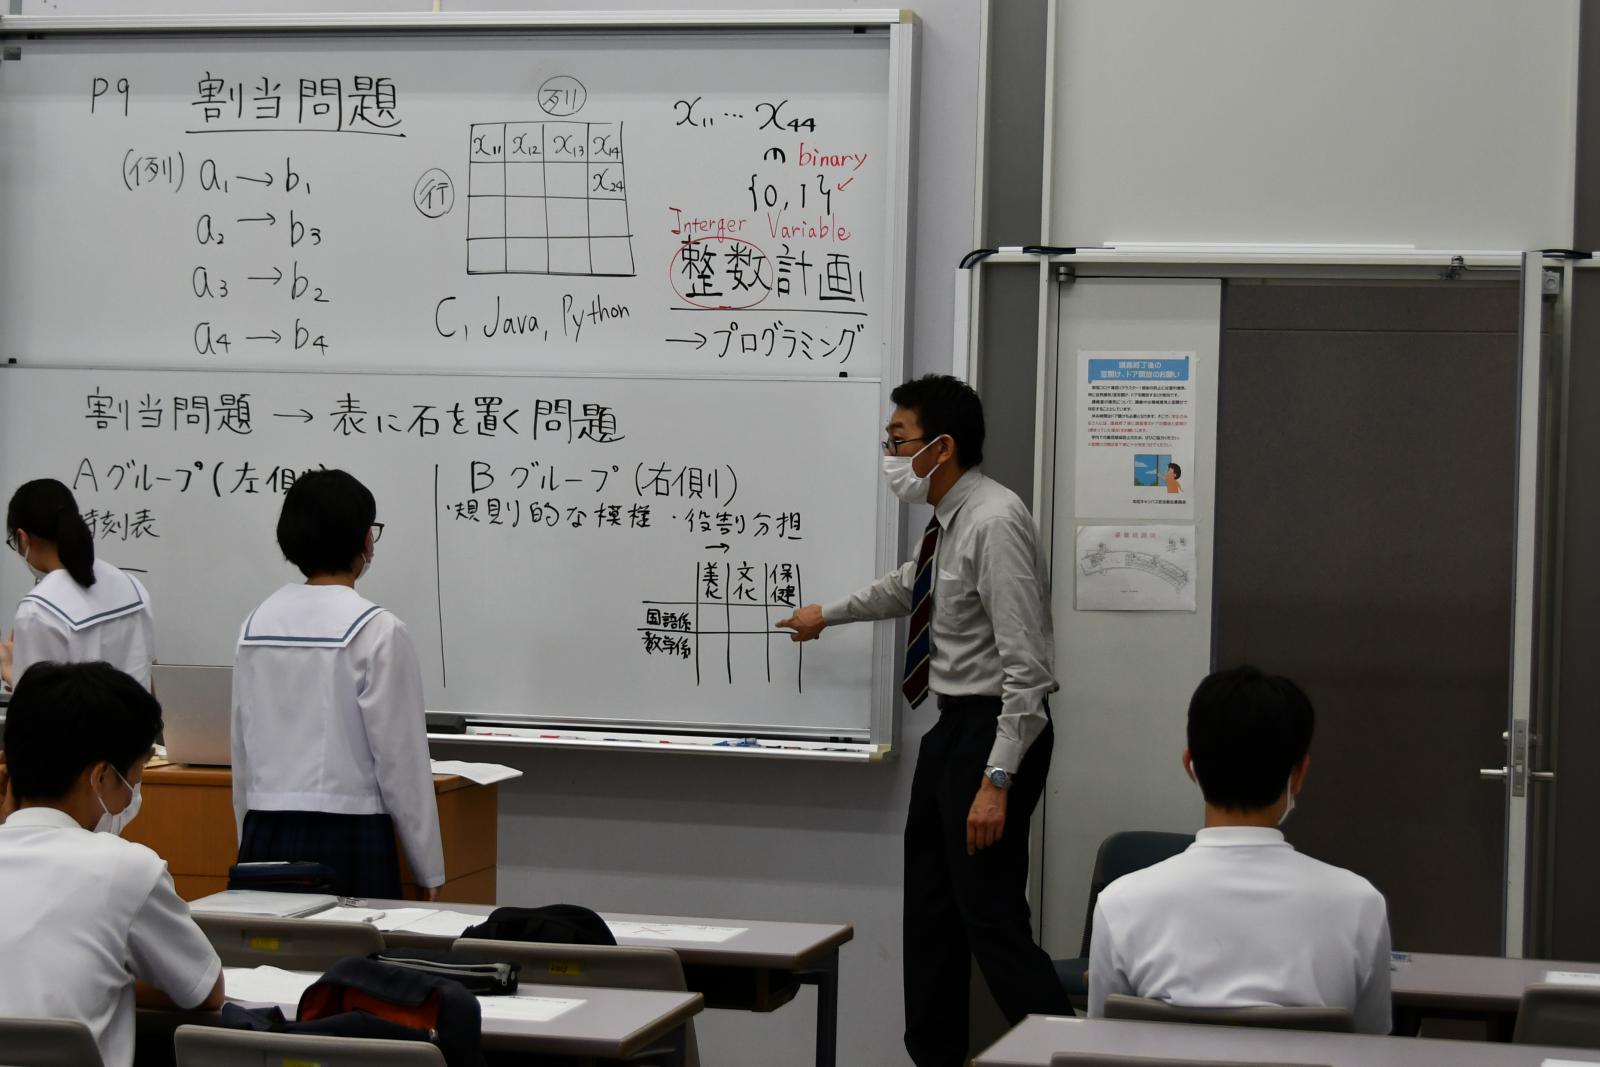 P9 割当問題
(例) a₁→b₁
a₂→b₃
a₃→b₂
a₄→b₄
列
行
x₁₁ x₁₂ x₁₃ x₁₄
x₂₄
C, Java, Python
x₁₁ … x₄₄
binary
{0,1}
Interger Variable
整数計画
→プログラミング
割当問題 → 表に石を置く問題
Aグループ(左側)
時刻表
Bグループ(右側)
・規則的な模様 ・役割分担
→
美化 文化 保健
国語係
数学係
講義終了後の
窓開け、ドア開放のお願い